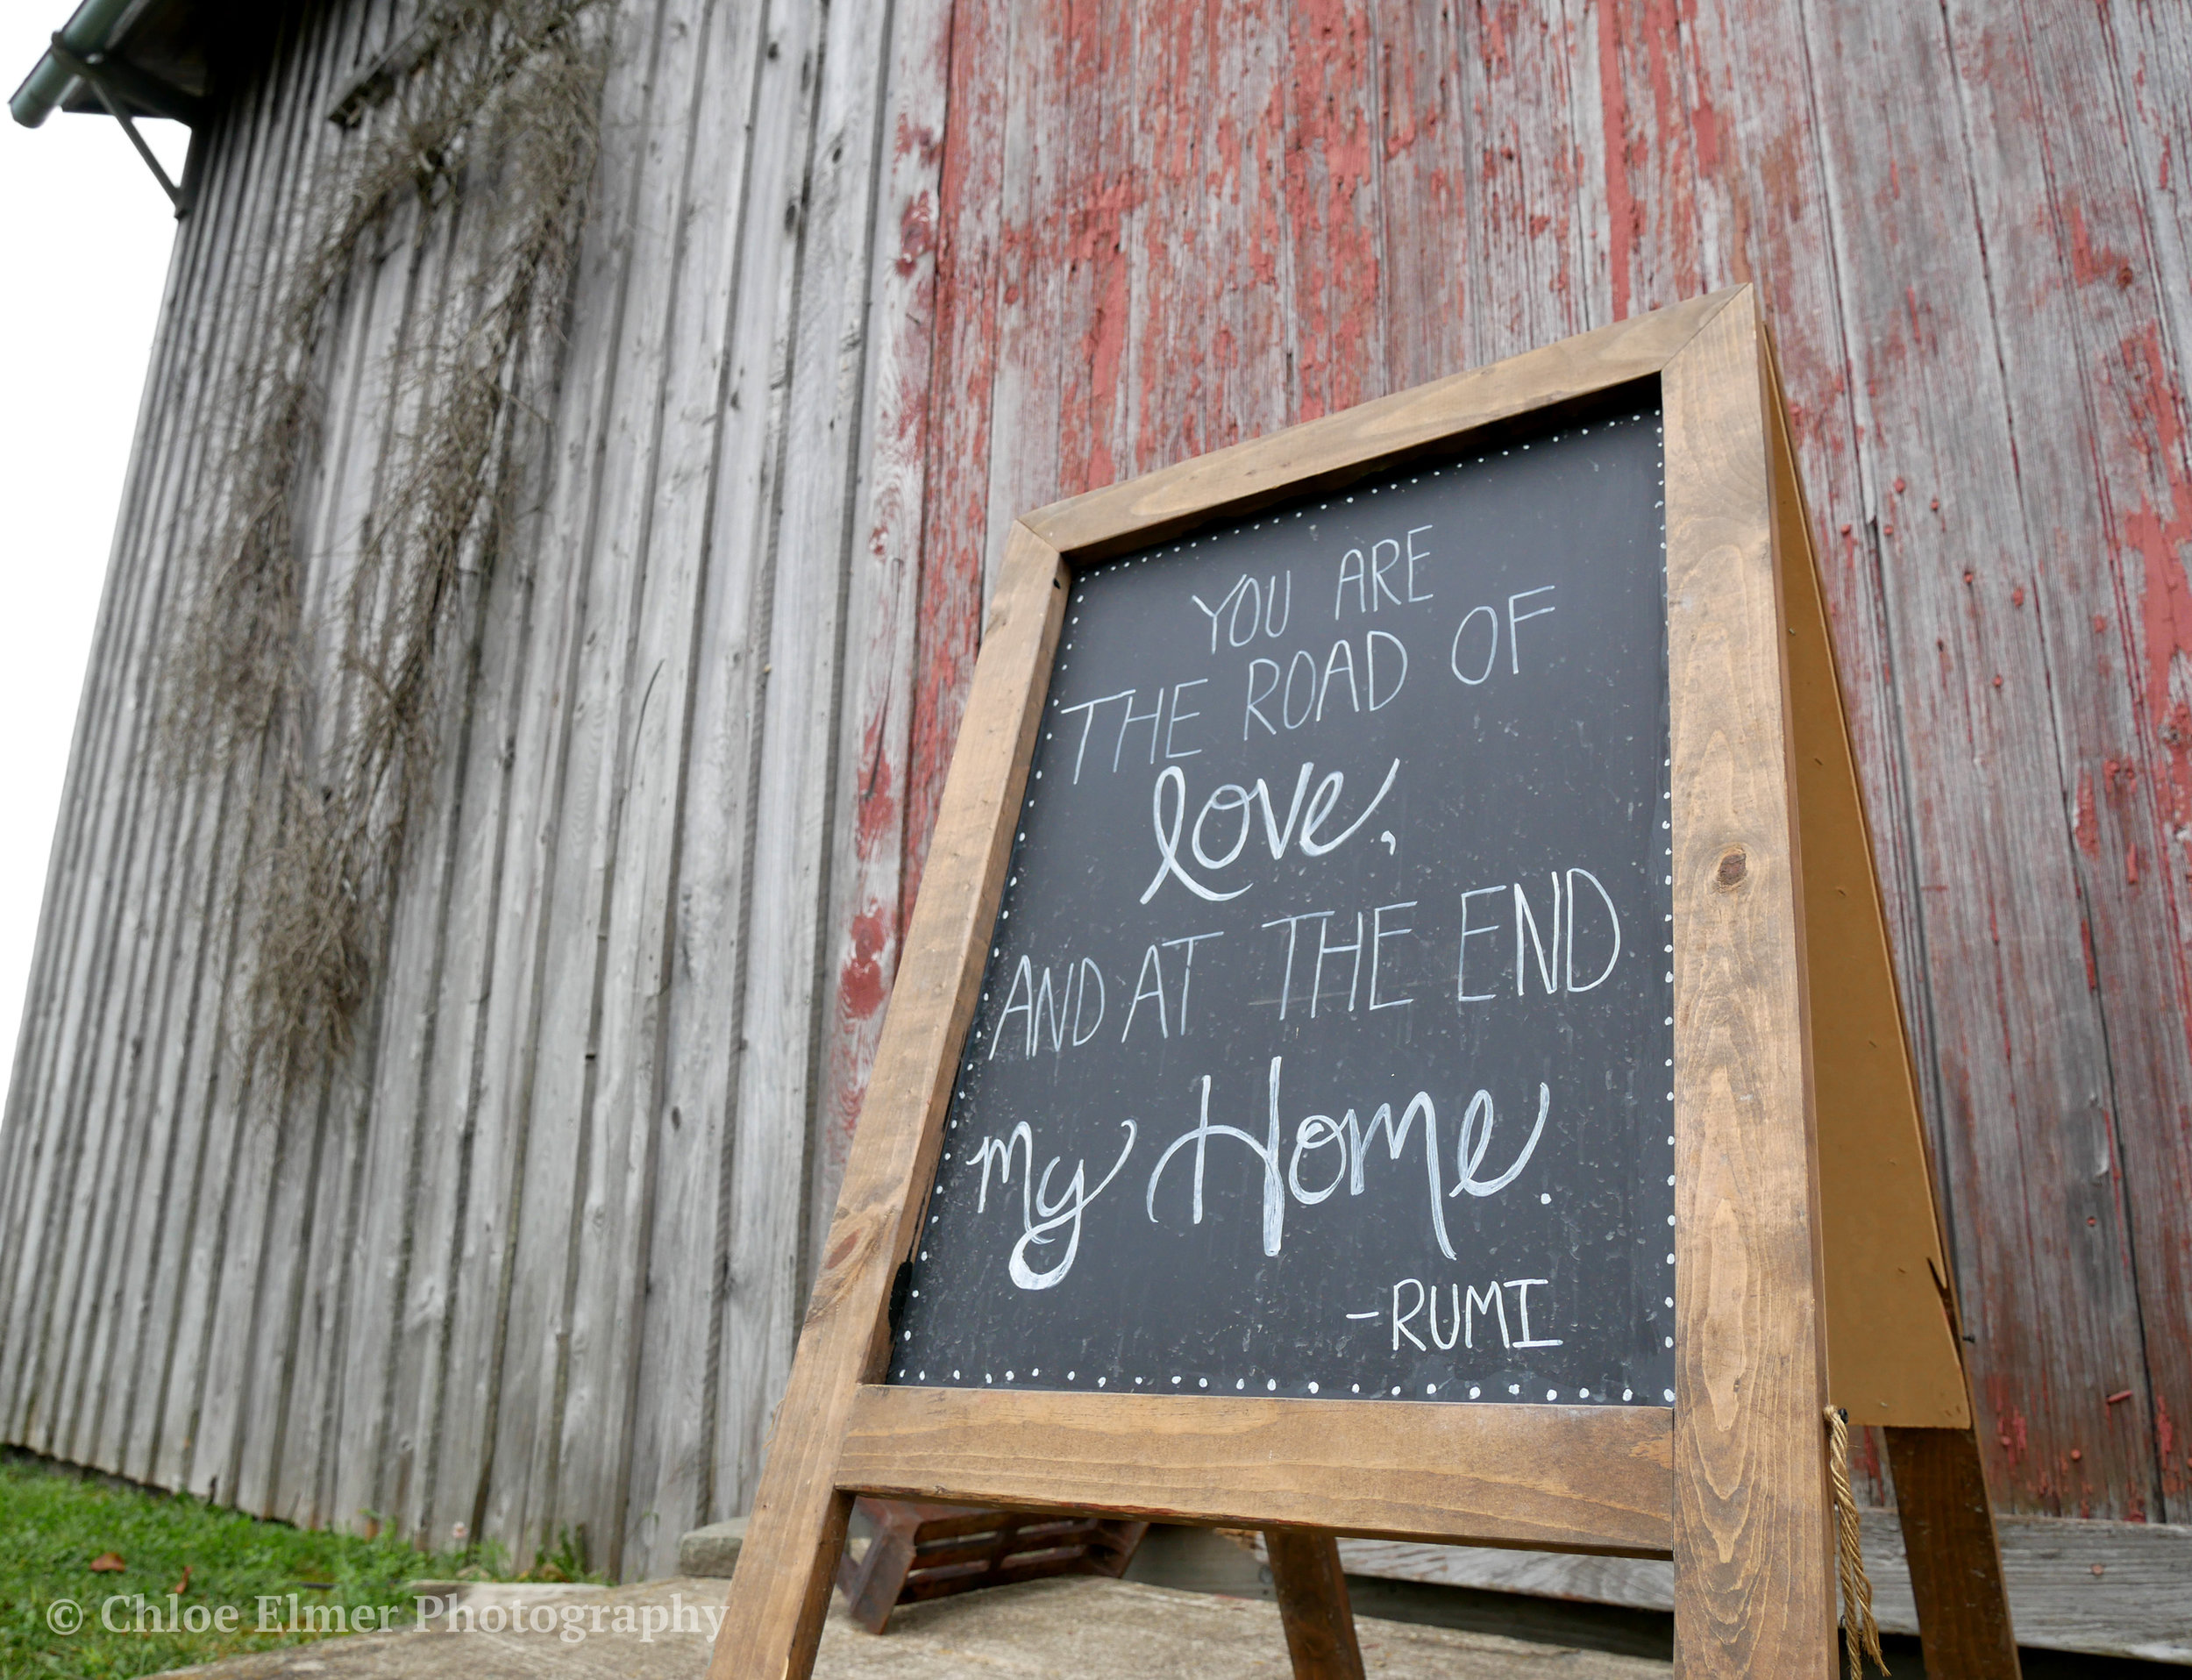 YOU ARE
THE ROAD OF
love,
AND AT THE END
my Home.
-RUMI
© Chloe Elmer Photography